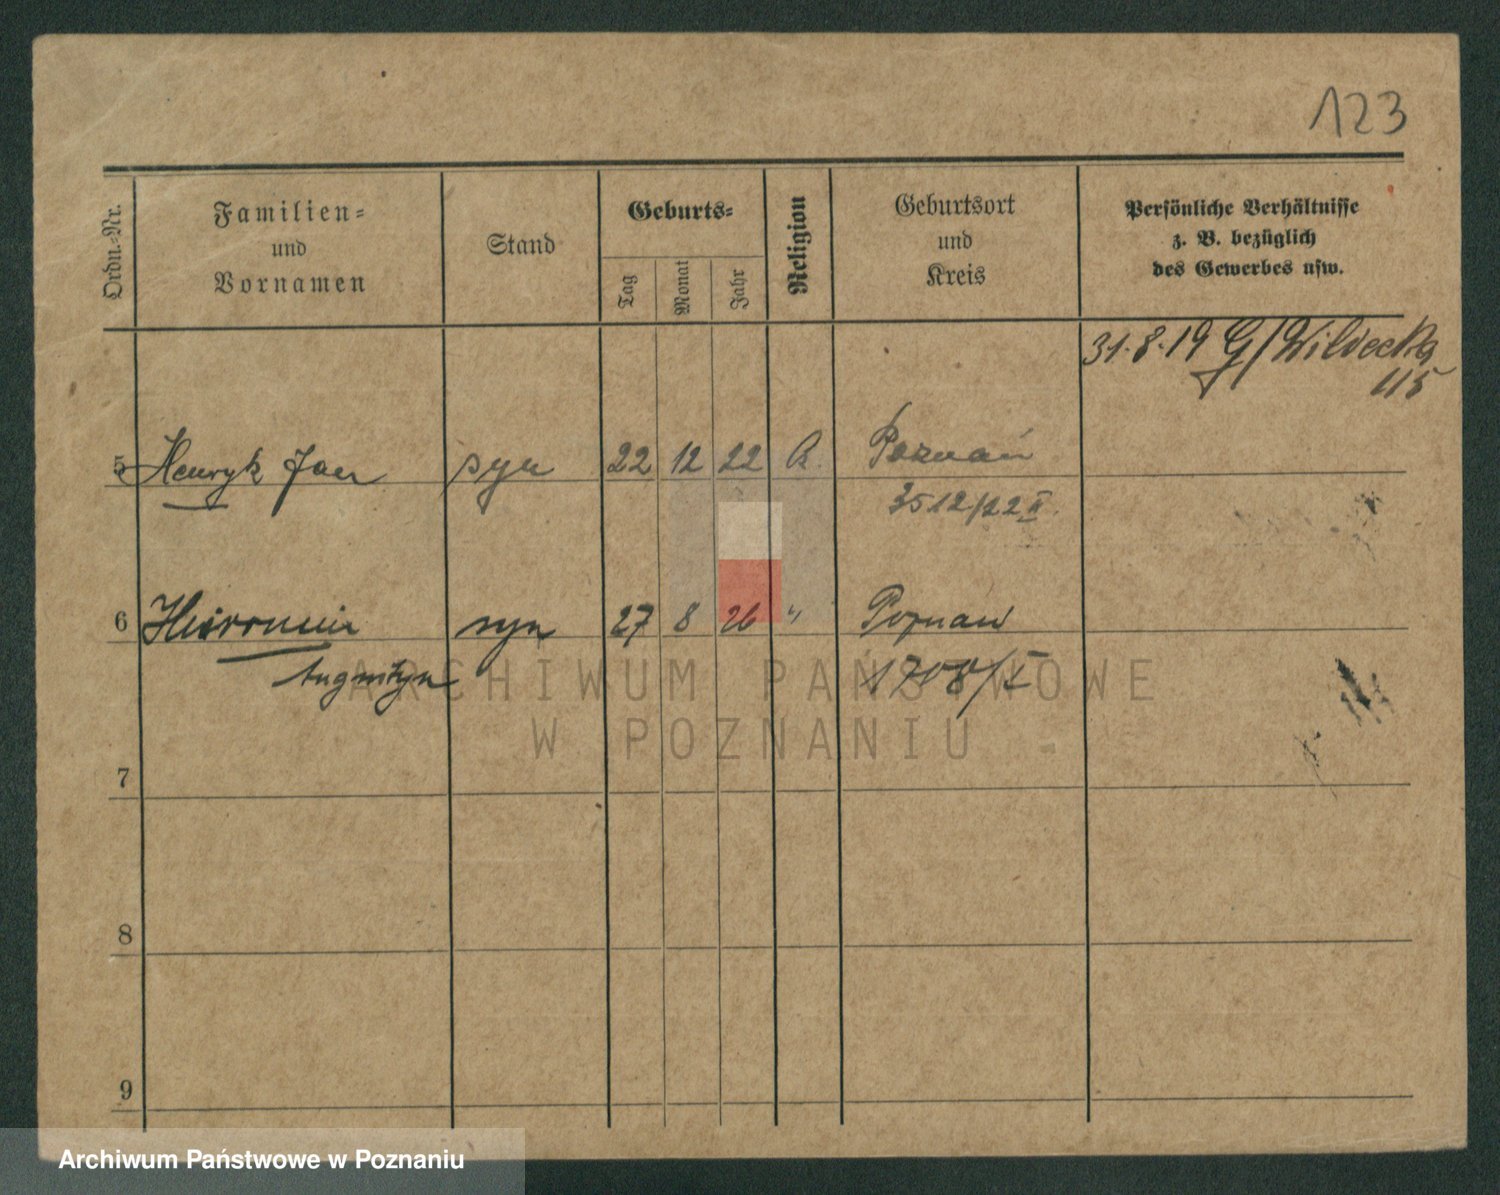 123
Ordn.-Nr.
Familien-
und
Vornamen
Stand
Geburts-
Tag
Monat
Jahr
Religion
Geburtsort
und
Kreis
Persönliche Verhältnisse
z. B. bezüglich
des Gewerbes usw.
31.8.19 G/Wildecka
115
5 Henryk Jan syn 22 12 22 Poznań
3512/22 II
6 Hieronim syn 27 8 26 " Poznań
Augustyn 1708/I
7
8
9
ARCHIWUM PAŃSTWOWE
W POZNANIU
Archiwum Państwowe w Poznaniu